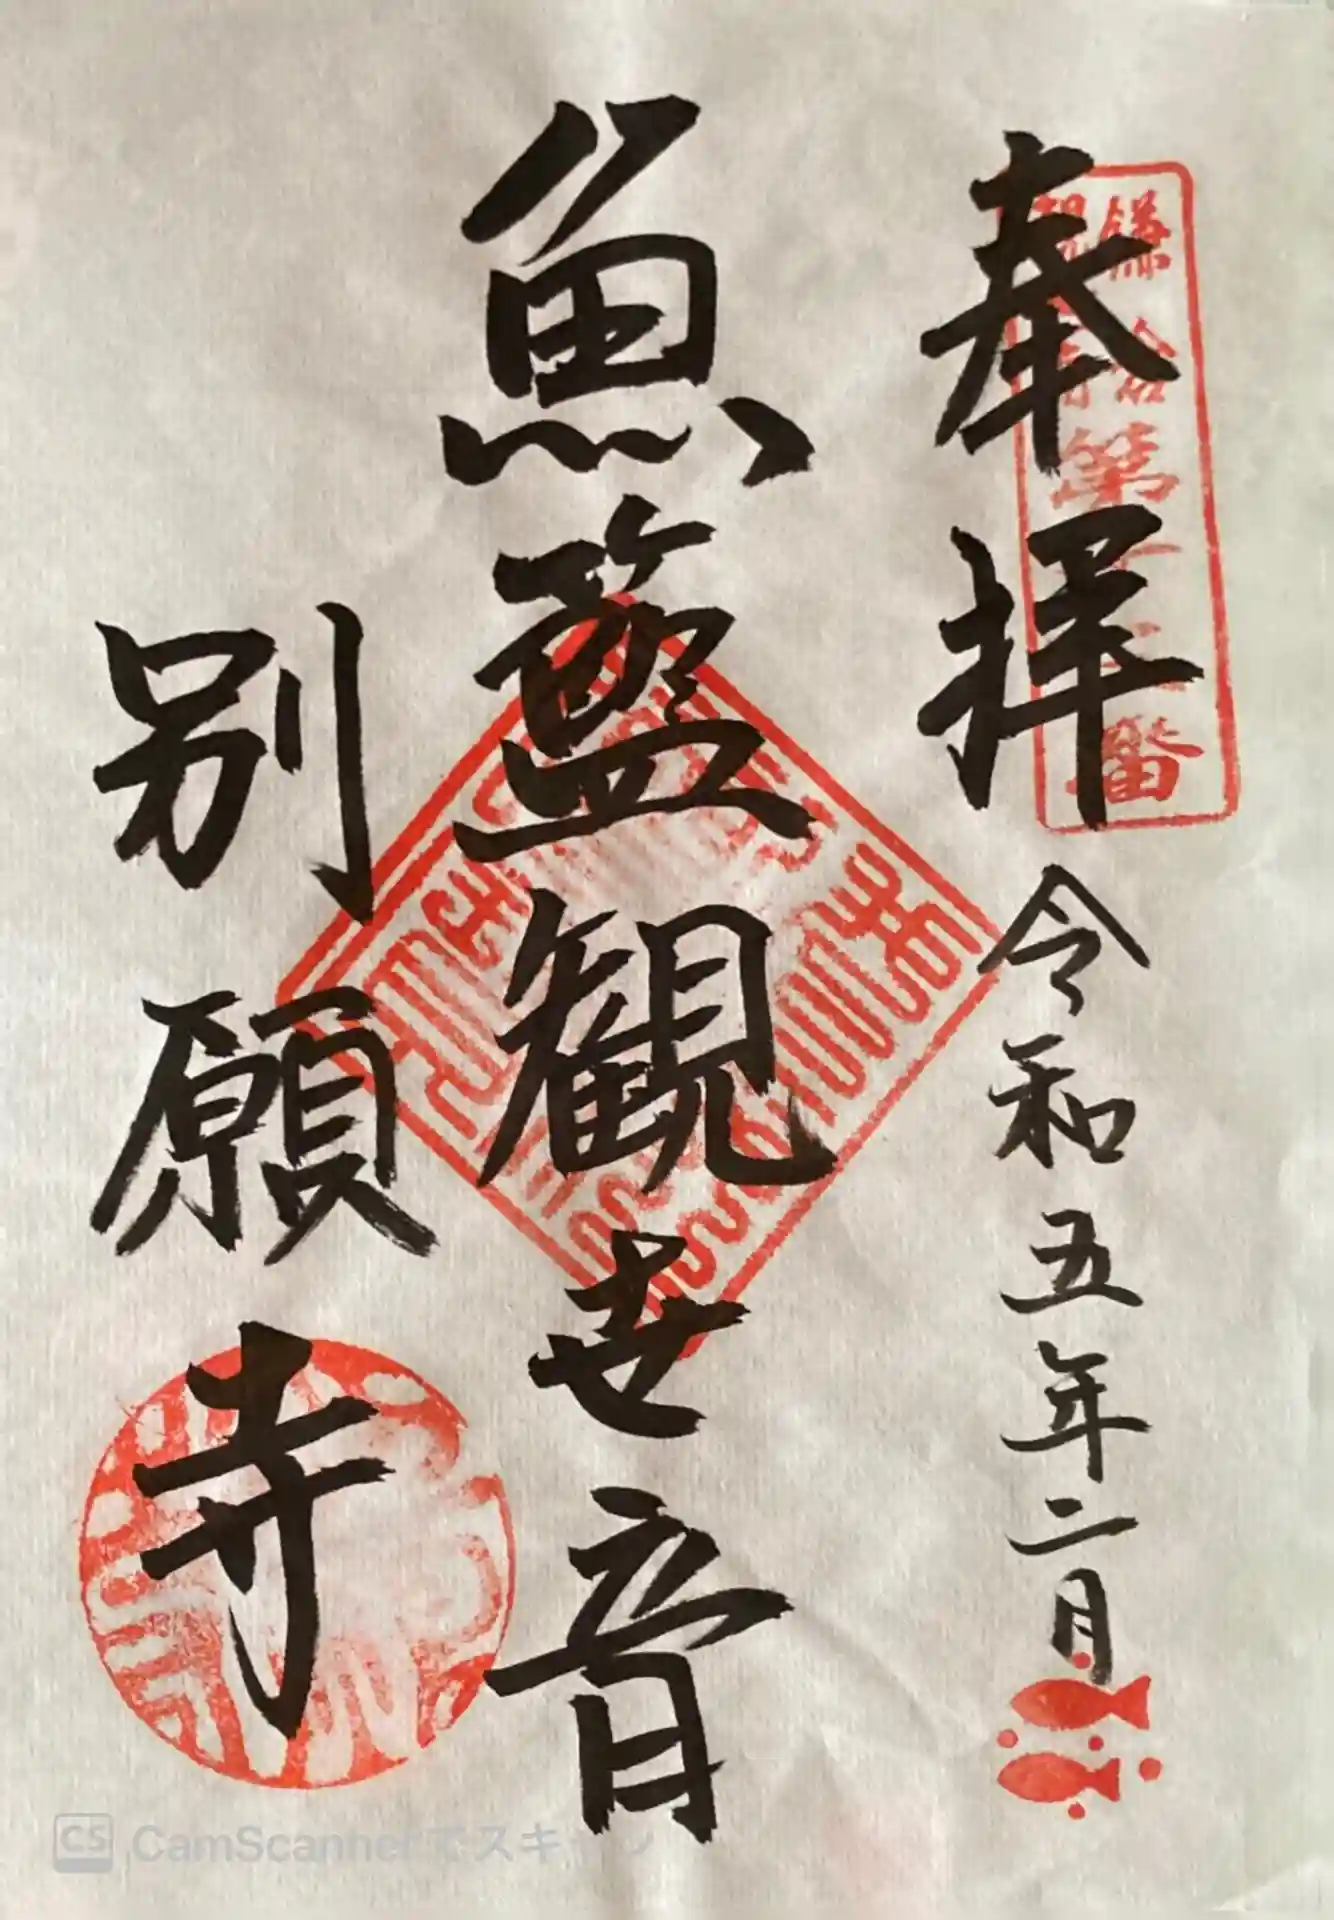 奉拝
令和五年二月
魚籃観世音
別願寺
第
番
CS CamScannerでスキャン